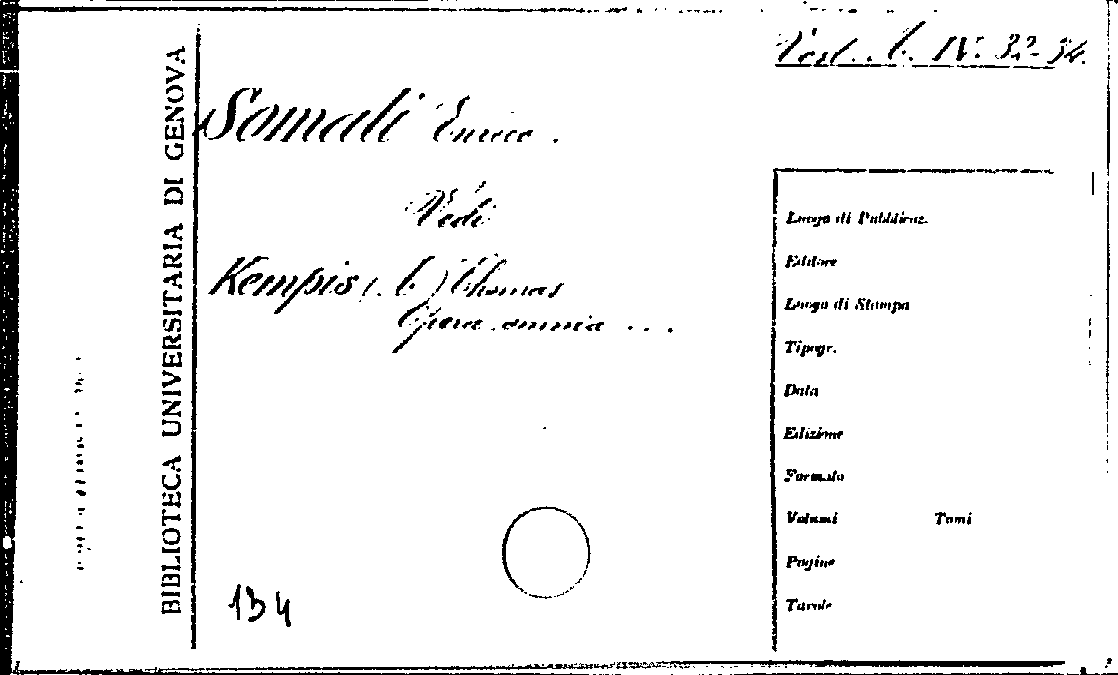 BIBLIOTECA UNIVERSITARIA DI GENOVA
IV. 32-34.
Somali Enrico.
Vedi
Kempis (.b) Thomas
Opera omnia ...
Luogo di Pubblicaz.
Editore
Luogo di Stampa
Tipogr.
Data
Edizione
Formato
Volumi Tomi
Pagine
Tavole
134